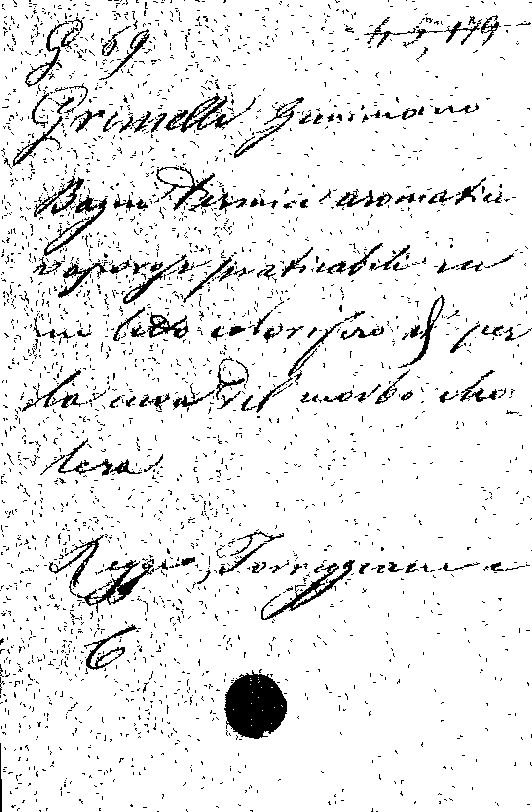 G. 69 4, 5, 179
Grimelli Geminiano
Bagni termici aromatici
vaporosi praticabili in
un letto calorifero & per
la cura del morbo cho-
lera
Reggio, Torreggiani e
C